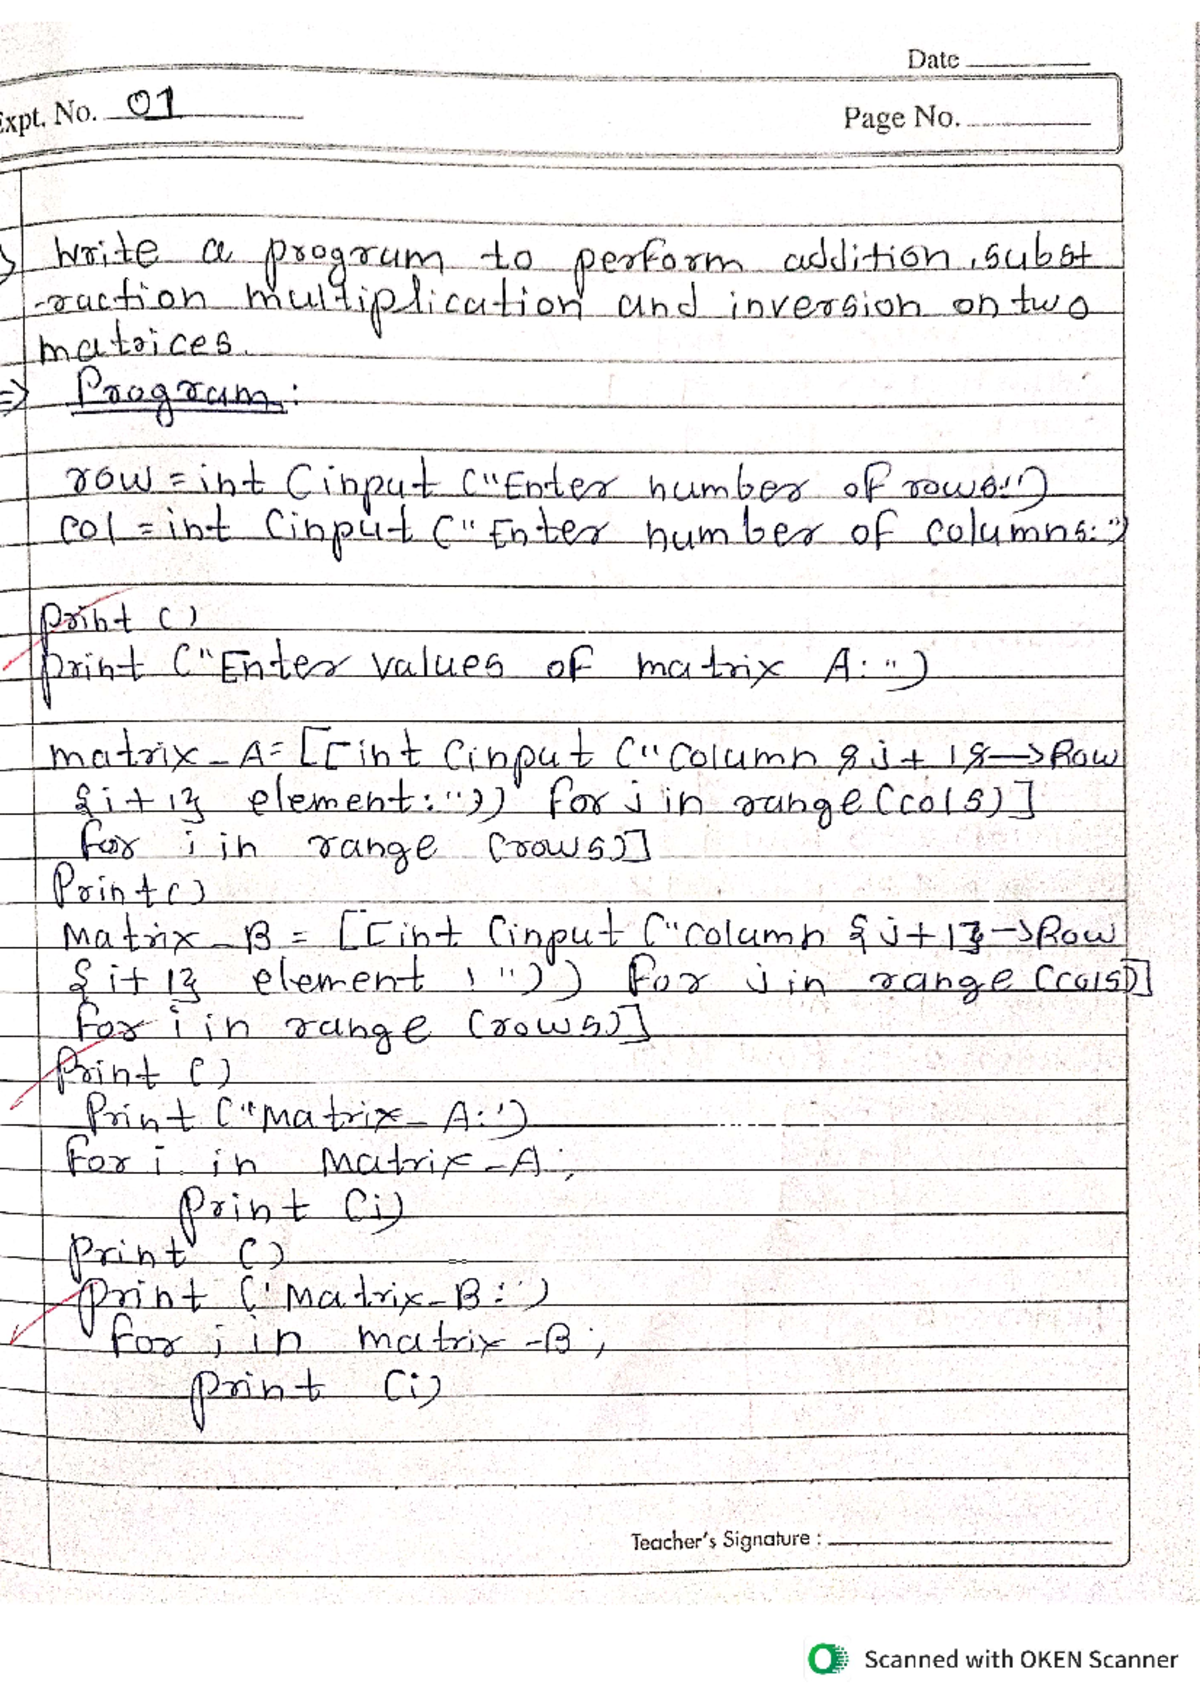 Date
Expt. No. 01
Page No.
Write a program to perform addition, subst
-raction multiplication and inversion on two
matrices.
=> Program:
row = int (input ("Enter number of rows:")
col = int (input ("Enter number of columns:")
print ()
print ("Enter values of matrix A:")
matrix_A= [[int (input ("Column {j+1}->Row
{i+1} element:")) for j in range (cols)]
for i in range (rows)]
Print()
Matrix_B = [[int (input ("column {j+1}->Row
{i+1} element :")) for j in range (cols)]
for i in range (rows)]
Print ()
Print ("Matrix_A:')
for i in Matrix_A:
print (i)
print ()
print ('Matrix_B:')
for i in matrix_B:
print (i)
Teacher's Signature :
Scanned with OKEN Scanner